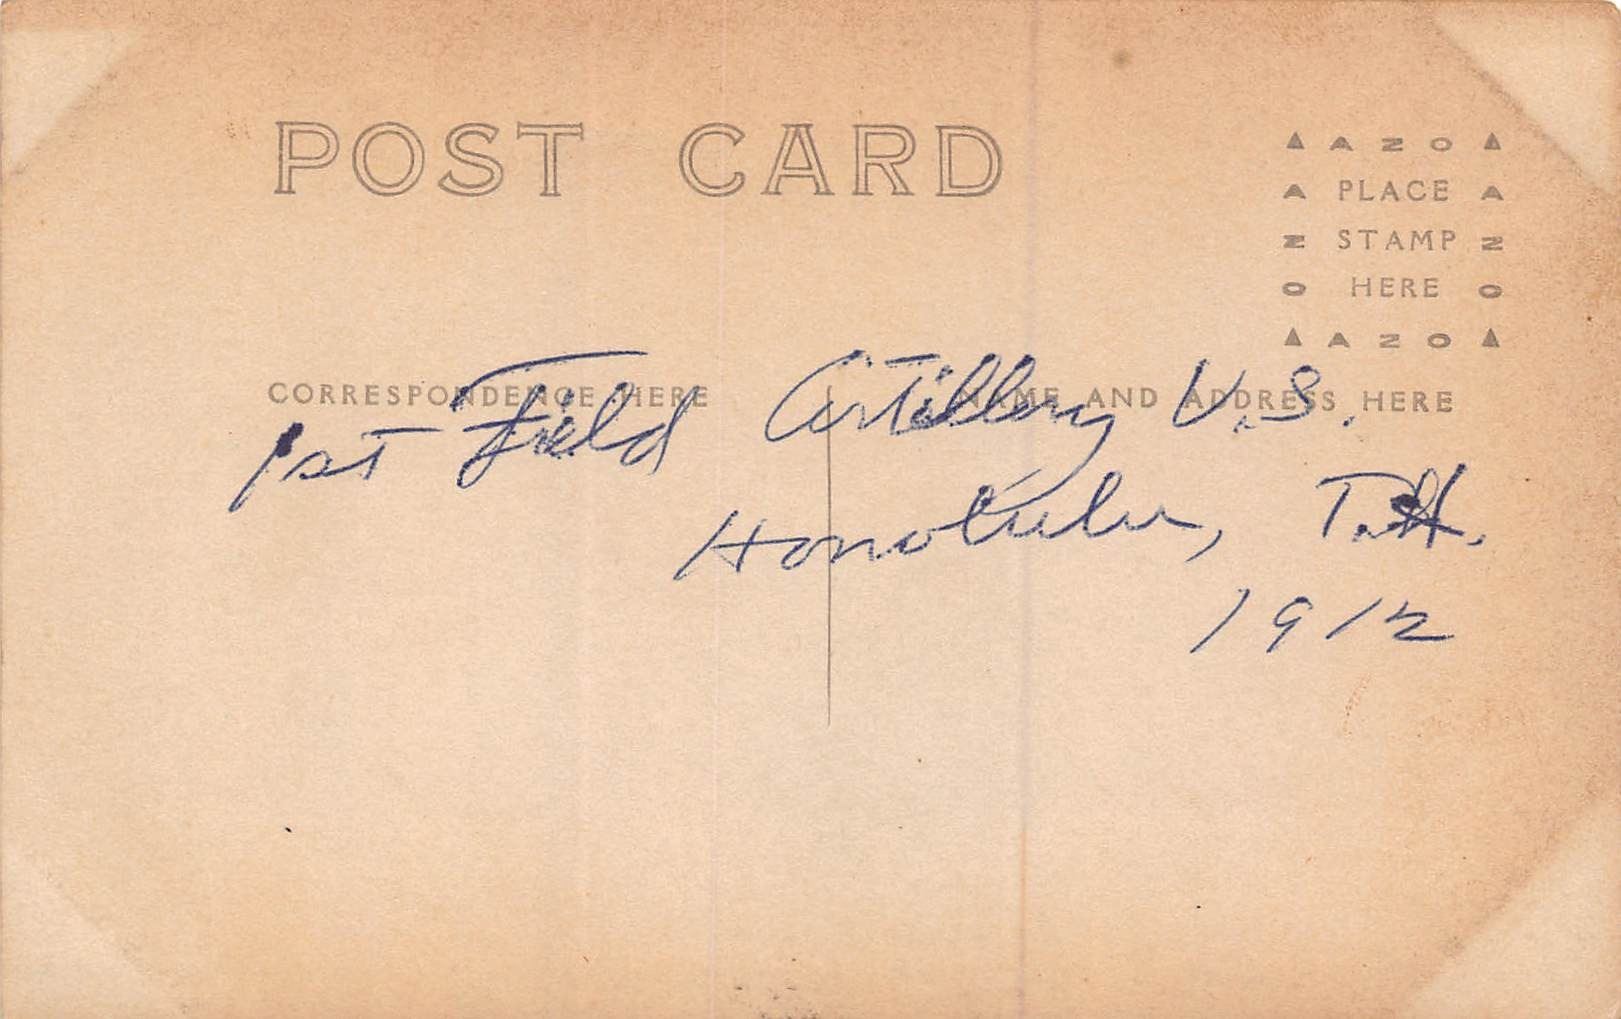 POST CARD
▲ A Z O ▲
A PLACE A
N STAMP N
O HERE O
▲ A Z O ▲
CORRESPONDENCE HERE
NAME AND ADDRESS HERE
1st Field Artillery U.S.
Honolulu, T.H.
1912